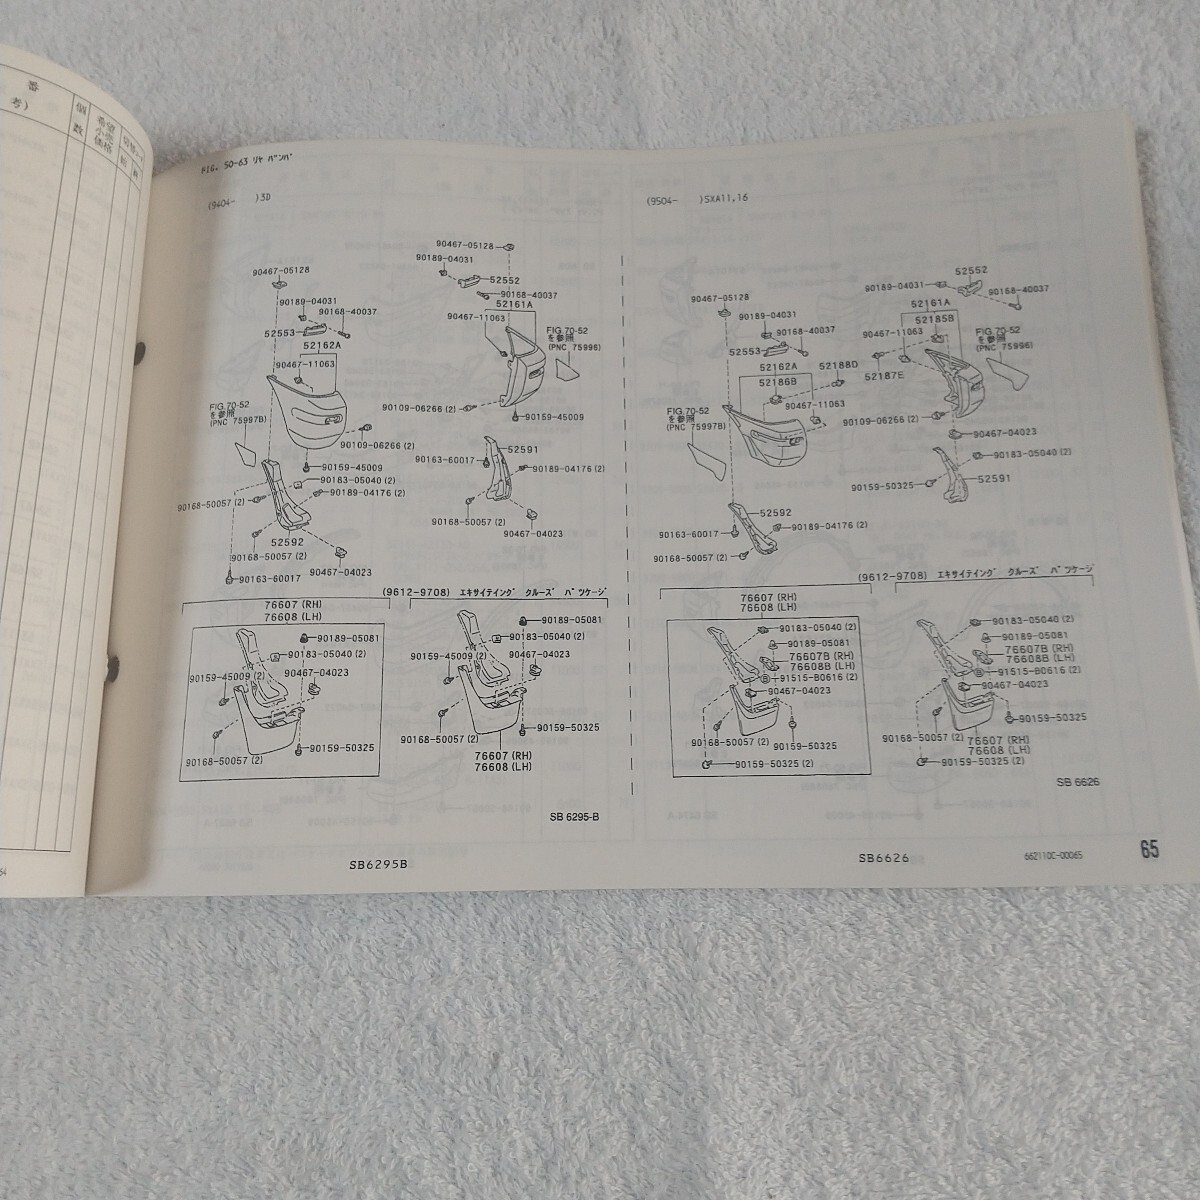 番
考)
個
数
希望
小売
価格
FIG. 50-63 リヤ バンパ
(9404- )3D
90467-05128
90189-04031
90467-05128
52552
90189-04031
90168-40037
90168-40037
52161A
52553
90467-11063
52162A
FIG.70-52
を参照
(PNC 75996)
90467-11063
FIG.70-52
を参照
(PNC 75997B)
90109-06266 (2)
90159-45009
90109-06266 (2)
52591
90163-60017
90159-45009
90189-04176 (2)
90183-05040 (2)
90189-04176 (2)
90168-50057 (2)
90168-50057 (2)
90467-04023
52592
90168-50057 (2)
90467-04023
90163-60017
(9612-9708) エキサイテイング クルーズ パツケージ
76607 (RH)
76608 (LH)
90189-05081
90183-05040 (2)
90159-45009 (2)
90467-04023
90168-50057 (2)
90159-50325
90189-05081
90183-05040 (2)
90159-45009 (2)
90467-04023
90159-50325
90168-50057 (2)
76607 (RH)
76608 (LH)
SB 6295-B
SB6295B
(9504- )SXA11,16
52552
90189-04031
90168-40037
90467-05128
52161A
90189-04031
52185B
90168-40037
90467-11063
FIG.70-52
を参照
(PNC 75996)
52553
52162A
52188D
52187E
52186B
90467-11063
FIG.70-52
を参照
(PNC 75997B)
90109-06266 (2)
90467-04023
90183-05040 (2)
90159-50325
52591
52592
90189-04176 (2)
90163-60017
90168-50057 (2)
(9612-9708) エキサイテイング クルーズ パツケージ
76607 (RH)
76608 (LH)
90183-05040 (2)
90189-05081
76607B (RH)
76608B (LH)
91515-B0616 (2)
90467-04023
90168-50057 (2)
90159-50325
90159-50325 (2)
90183-05040 (2)
90189-05081
76607B (RH)
76608B (LH)
91515-B0616 (2)
90467-04023
90159-50325
90168-50057 (2)
76607 (RH)
76608 (LH)
90159-50325 (2)
SB 6626
SB6626
662110C-00065
65
64